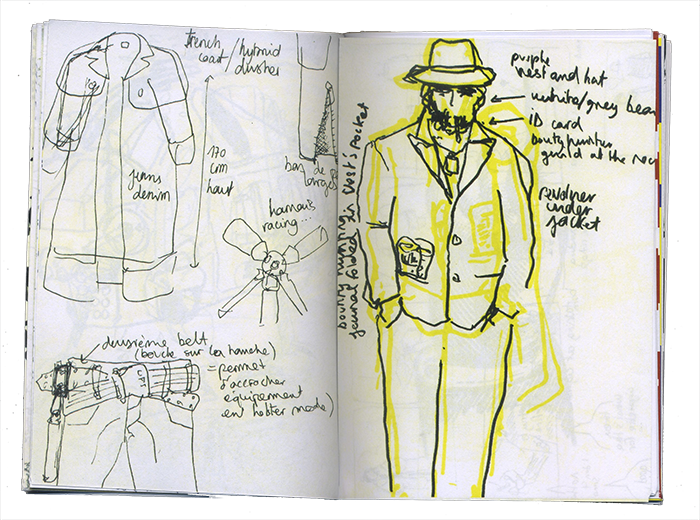 trench
coat/hybrid
duster
jeans
denim
170
cm
haut
bas de
harnais
racing...
deuxième belt
(boucle sur la hanche)
= permet
d'accrocher
equipement
en holster mode)
bounty hunting
journal folded in vest's pocket
purple
vest and hat
white/grey bear
ID card
bounty hunter
guild at the
revolver
under
jacket